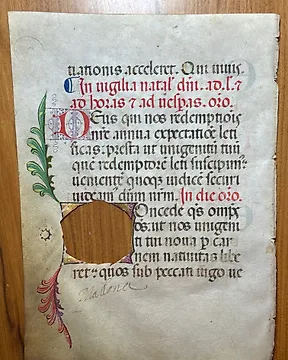 nationis acceleret. Qui viuis.
In vigilia natal' dñi. ad .s. ⁊
ad horas ⁊ ad vesp̃as. oro.
Deus qui nos redemptiõis
nr̃e annua expectatiõe leti
ficas: presta ut unigenitũ tuũ
quẽ redemptorẽ leti suscipim⁹
uenientẽ quoq; iudicẽ securi
uideam⁹ dñm nr̃m. In die oro.
Oncede q̃s omp̃s
ds: ut nos unigeni
ti tui noua p̱ car
nem natiuitas libe
ret: quos sub peccati iugo ue